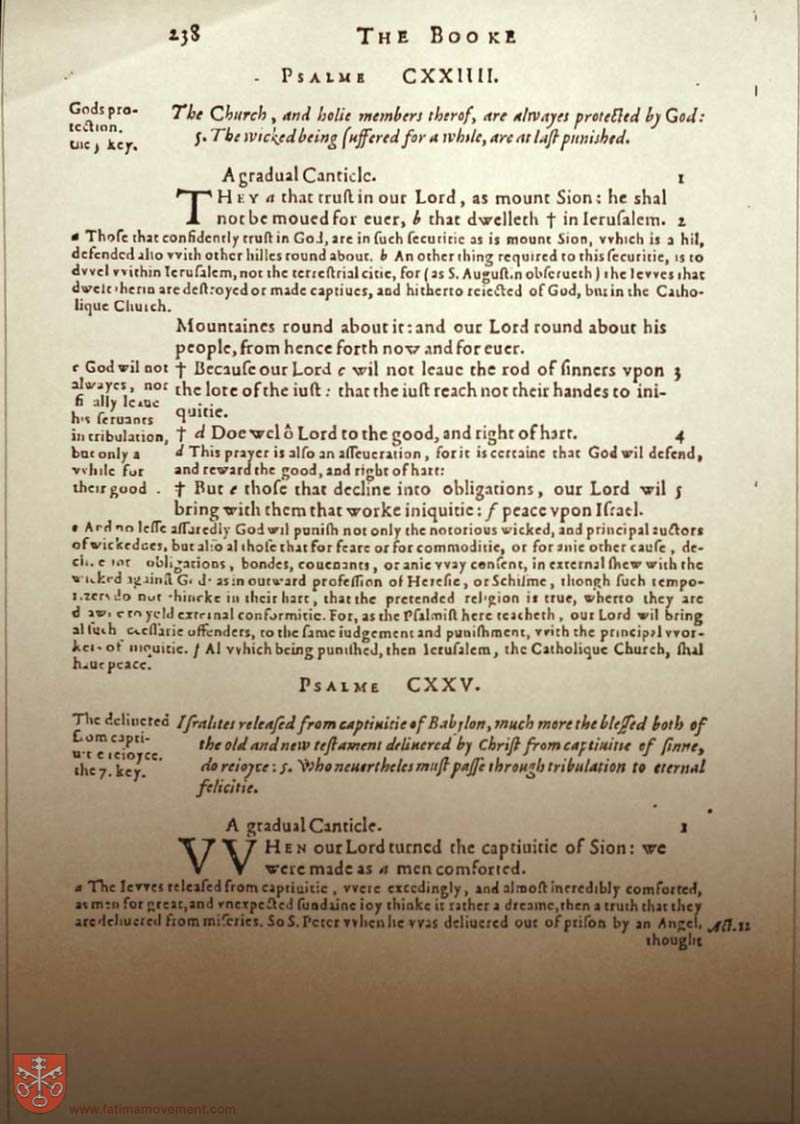 238 THE BOOKE
PSALME CXXIIII.
Gods pro-
tection.
the 3 key.
The Church, and holie members therof, are alwayes protected by God:
5. The wicked being ſuffered for a while, are at laſt punished.
A gradual Canticle. 1
THEY a that truſt in our Lord, as mount Sion: he shal
not be moued for euer, b that dwelleth † in Ieruſalem. 2
a Thoſe that confidently truſt in God, are in ſuch ſecuritie as is mount Sion, vvhich is a hil,
defended alſo vvith other hilles round about. b An other thing required to this ſecuritie, is to
dvvel vvithin Ieruſalem, not the terreſtrial citie, for (as S. Auguſtin obſerueth) the Ievves that
dwelt therin are deſtroyed or made captiues, and hitherto reiected of God, but in the Catho-
lique Church.
Mountaines round about it: and our Lord round about his
people, from hence forth now and for euer.
c God wil not
alwayes, nor
finally leaue
his ſeruants
in tribulation,
but only a
vvhile for
their good.
† Becauſe our Lord c wil not leaue the rod of ſinners vpon 3
the lote of the iuſt: that the iuſt reach not their handes to ini-
quitie.
† d Doe wel ô Lord to the good, and right of hart. 4
d This prayer is alſo an aſſeueration, for it is certaine that God wil defend,
and reward the good, and right of hart:
† But e thoſe that decline into obligations, our Lord wil 5
bring with them that worke iniquitie: f peace vpon Iſrael.
e And no leſſe aſſuredly God wil puniſh not only the notorious wicked, and principal auctors
of wickednes, but alſo al thoſe that for feare or for commoditie, or for anie other cauſe, de-
cline into obligations, bondes, couenants, or anie vvay conſent, in external ſhew with the
wicked againſt God: as in outward profeſſion of Hereſie, or Schiſme, though ſuch tempo-
rizers do not thincke in their hart, that the pretended religion is true, wherto they are
drawen to yeld external conformitie. For, as the Pſalmiſt here teacheth, our Lord wil bring
al ſuch offenders, to the ſame iudgement and puniſhment, vvith the principal vvor-
kers of iniquitie. f Al vvhich being puniſhed, then Ieruſalem, the Catholique Church, ſhal
haue peace.
PSALME CXXV.
The deliuered
from capti-
uitie reioyce.
the 7. key.
Iſralites releaſed from captiuitie of Babylon, much more the bleſſed both of
the old and new teſtament deliuered by Chriſt from captiuitie of ſinne,
do reioyce: 5. Who neuertheles muſt paſſe through tribulation to eternal
felicitie.
A gradual Canticle. 1
VVHEN our Lord turned the captiuitie of Sion: we
were made as a men comforted.
a The Ievves releaſed from captiuitie, vvere excedingly, and almoſt incredibly comforted,
as men for great, and vnexpected ſundaine ioy thinke it rather a dreame, then a truth that they
are deliuered from miſeries. So S. Peter vvhen he vvas deliuered out of priſon by an Angel, Act. 12
thought
www.fatimamovement.com